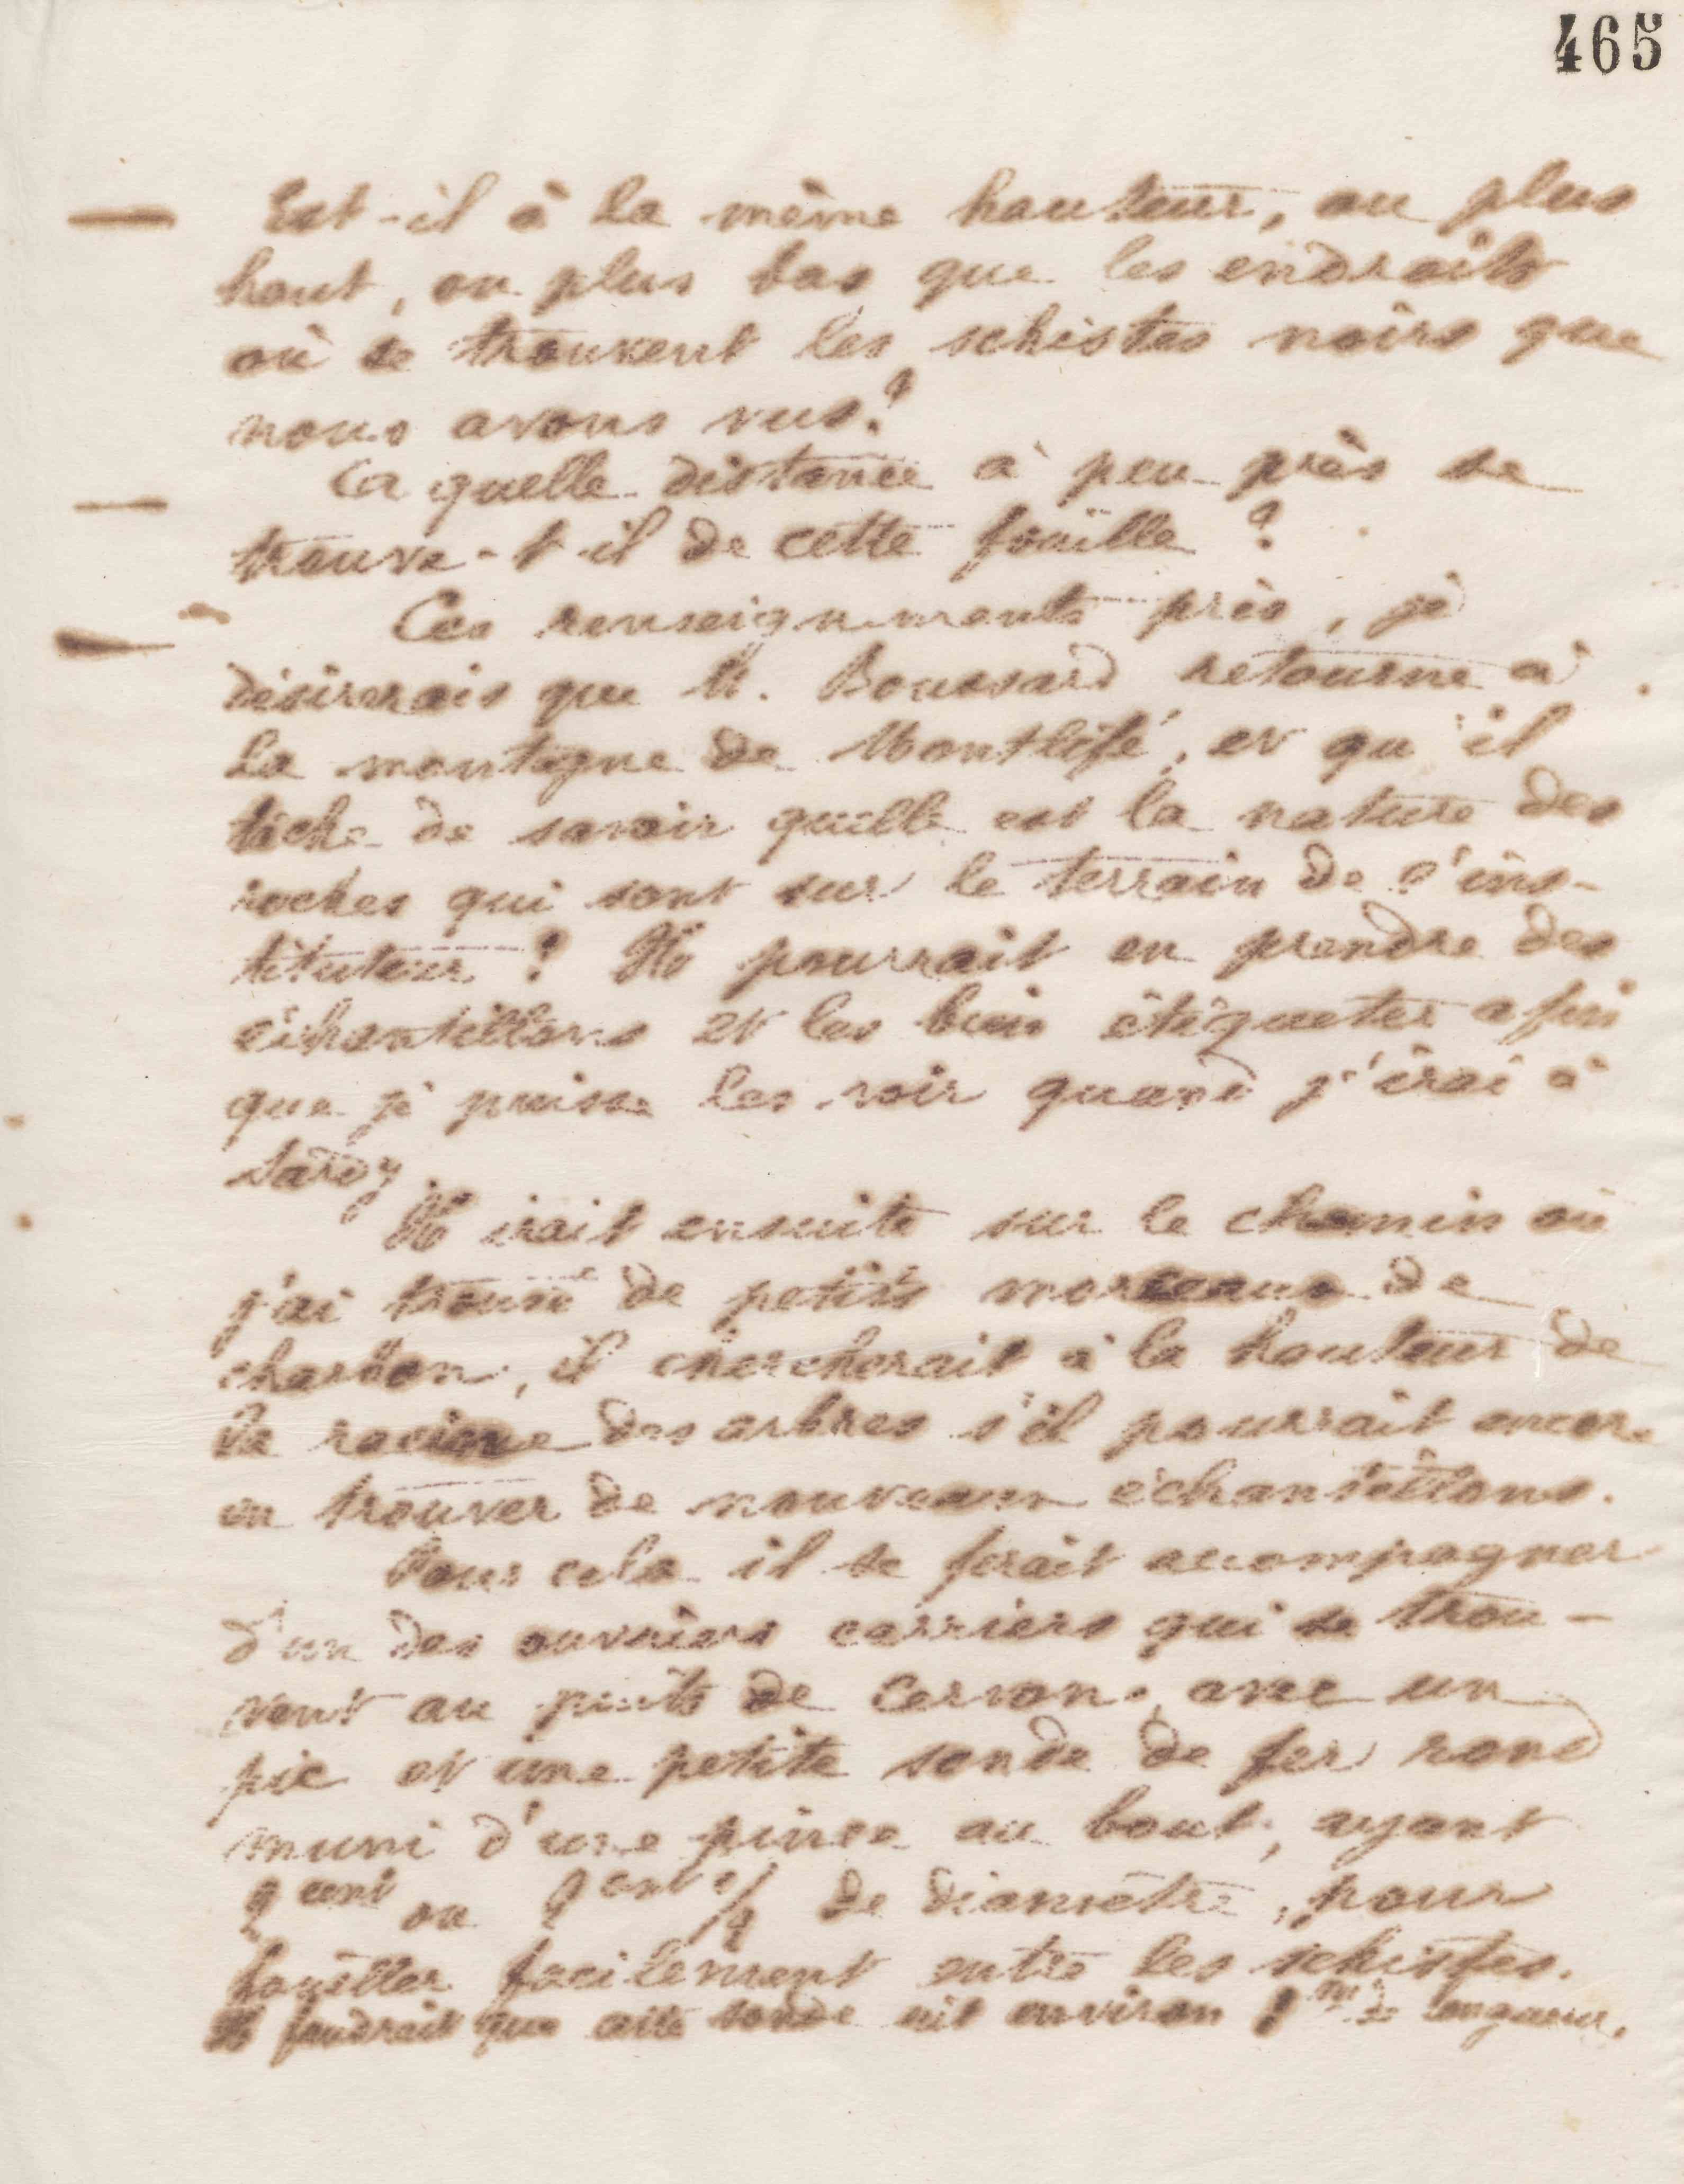 465
Est-il à la même hauteur, ou plus
haut, ou plus bas que les endroits
où se trouvent les schistes noirs que
nous avons vus?
A quelle distance à peu près se
trouve-t-il de cette fouille?
Ces renseignements pris, je
désirerais que M. Boussard retourne à
la montagne de et qu'il
tâche de savoir quelle est la nature des
roches qui sont sur le terrain de l'ins-
tituteur? Il pourrait en prendre des
échantillons et les bien étiqueter afin
que je puisse les voir quand j'irai à
Sardy.
Il irait ensuite sur le chemin où
j'ai trouvé de petits morceaux de
charbon, il chercherait à la hauteur de
la racine des arbres s'il pourrait encore
en trouver de nouveaux échantillons.
Pour cela il se ferait accompagner
d'un des ouvriers carriers qui se trou-
vent au puits de Cervon, avec un
pic et une petite sonde de fer rond
muni d'une pince au bout, ayant
2 cent ou 2 cent 1/2 de diamètre, pour
fouiller facilement entre les schistes.
Il faudrait que cette sonde ait environ 1m de longueur.